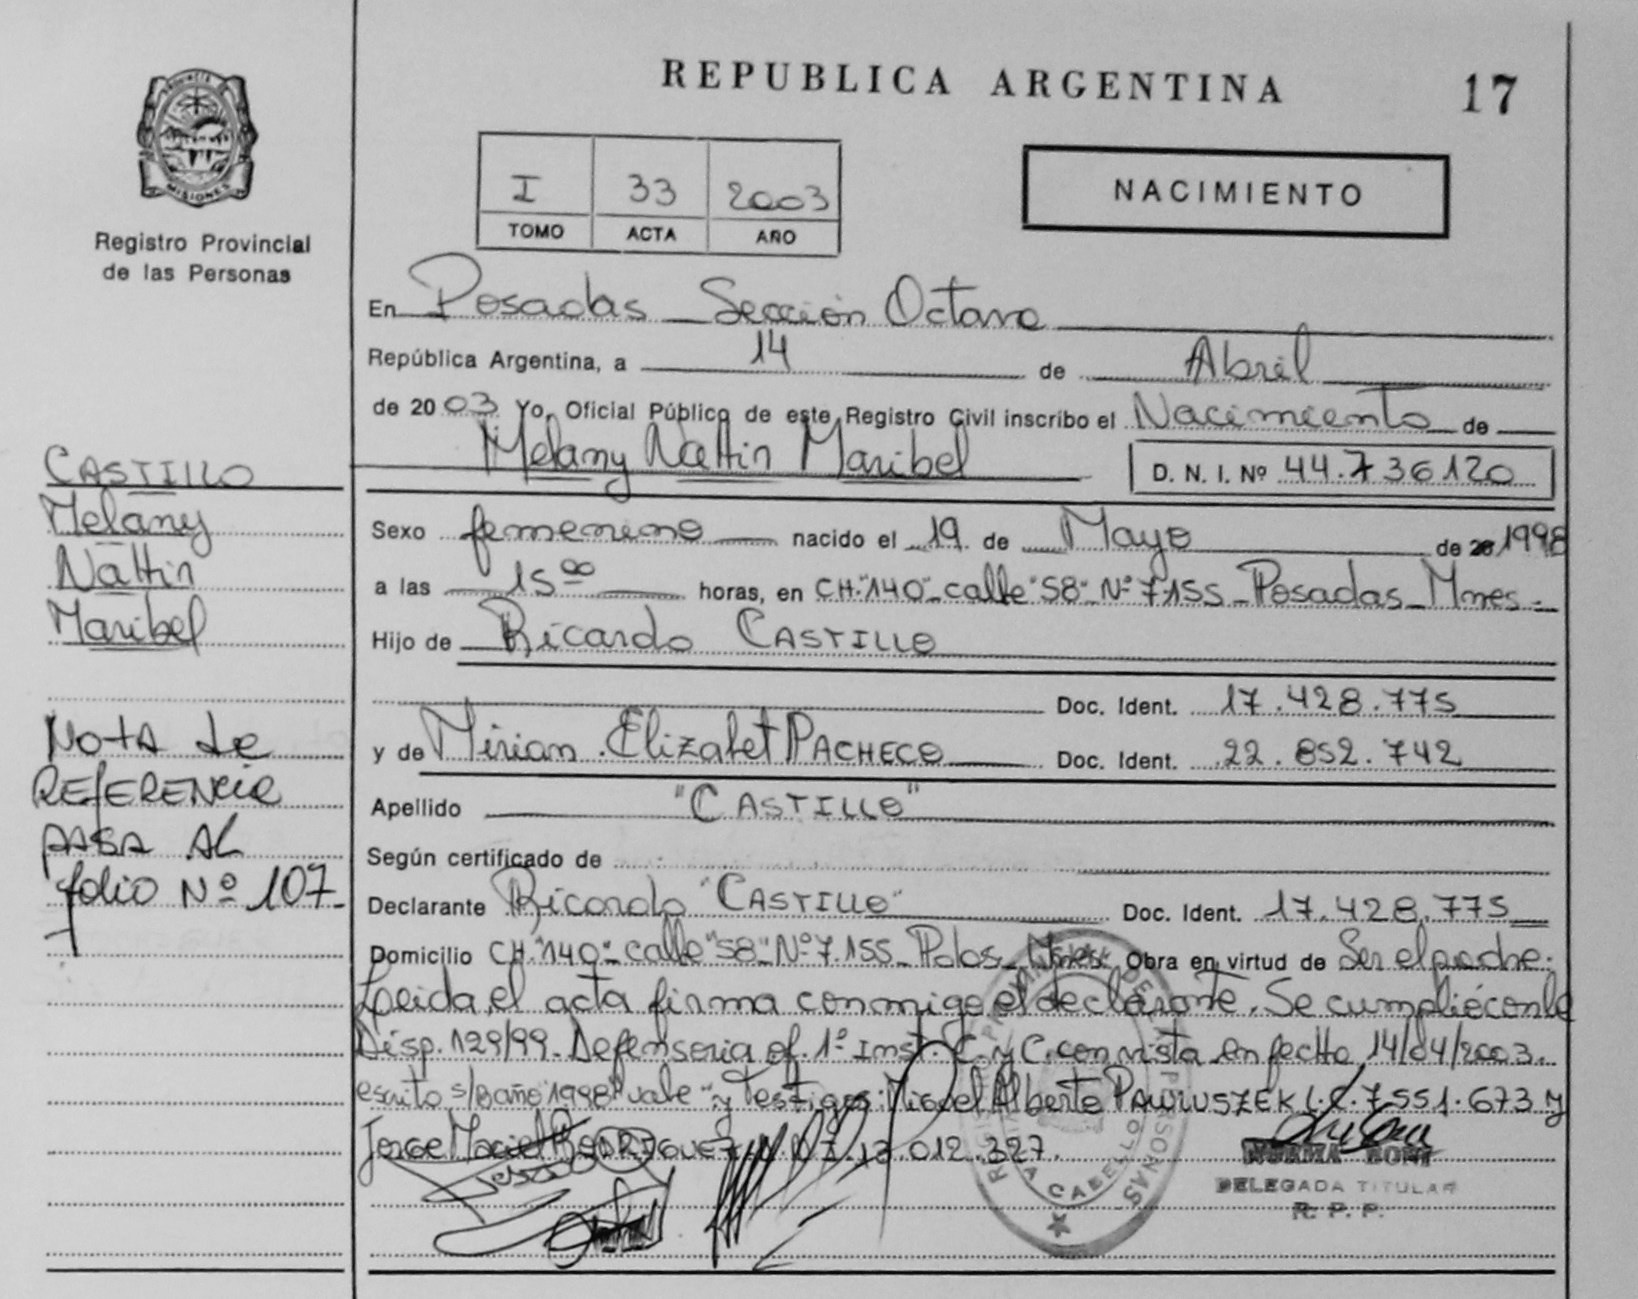 REPUBLICA ARGENTINA
17
PROVINCIA
MISIONES
Registro Provincial
de las Personas
I 33 2003
TOMO ACTA AÑO
NACIMIENTO
En Posadas _ Sección Octava
República Argentina, a 14 de Abril
de 2003 Yo, Oficial Público de este Registro Civil inscribo el Nacimiento de
Melany Nattin Maribel D. N. I. Nº 44.736120
Sexo femenino nacido el 19 de Mayo de 20 1998
a las 15 00 horas, en CH."140"_calle "58"_Nº 7.155_Posadas_Mnes.
Hijo de Ricardo CASTILLO
Doc. Ident. 17.428.775
y de Mirian Elizabet PACHECO Doc. Ident. 22.852.742
Apellido "CASTILLO"
Según certificado de
Declarante Ricardo "CASTILLO" Doc. Ident. 17.428.775
Domicilio CH."140"_calle "58"_Nº 7.155_Pdas_Mnes. Obra en virtud de Ser el padre.
Leida el acta firma conmigo el declarante. Se cumplió con la
Disp. 129/99. Defensoria of. 1º Inst. C. y C. con vista en fecha 14/04/2003.
escrito s/B año "1998" vale "y Testigos: Miguel Alberto PAWLUSZEK L.E. 7.551.673 y
Jorge RODRIGUEZ 012.327.
NORMA
DELEGADA TITULAR
R. P. P.
CASTILLO
Melany
Nattin
Maribel
NOTA de
REFERENCIA
PASA AL
folio Nº 107